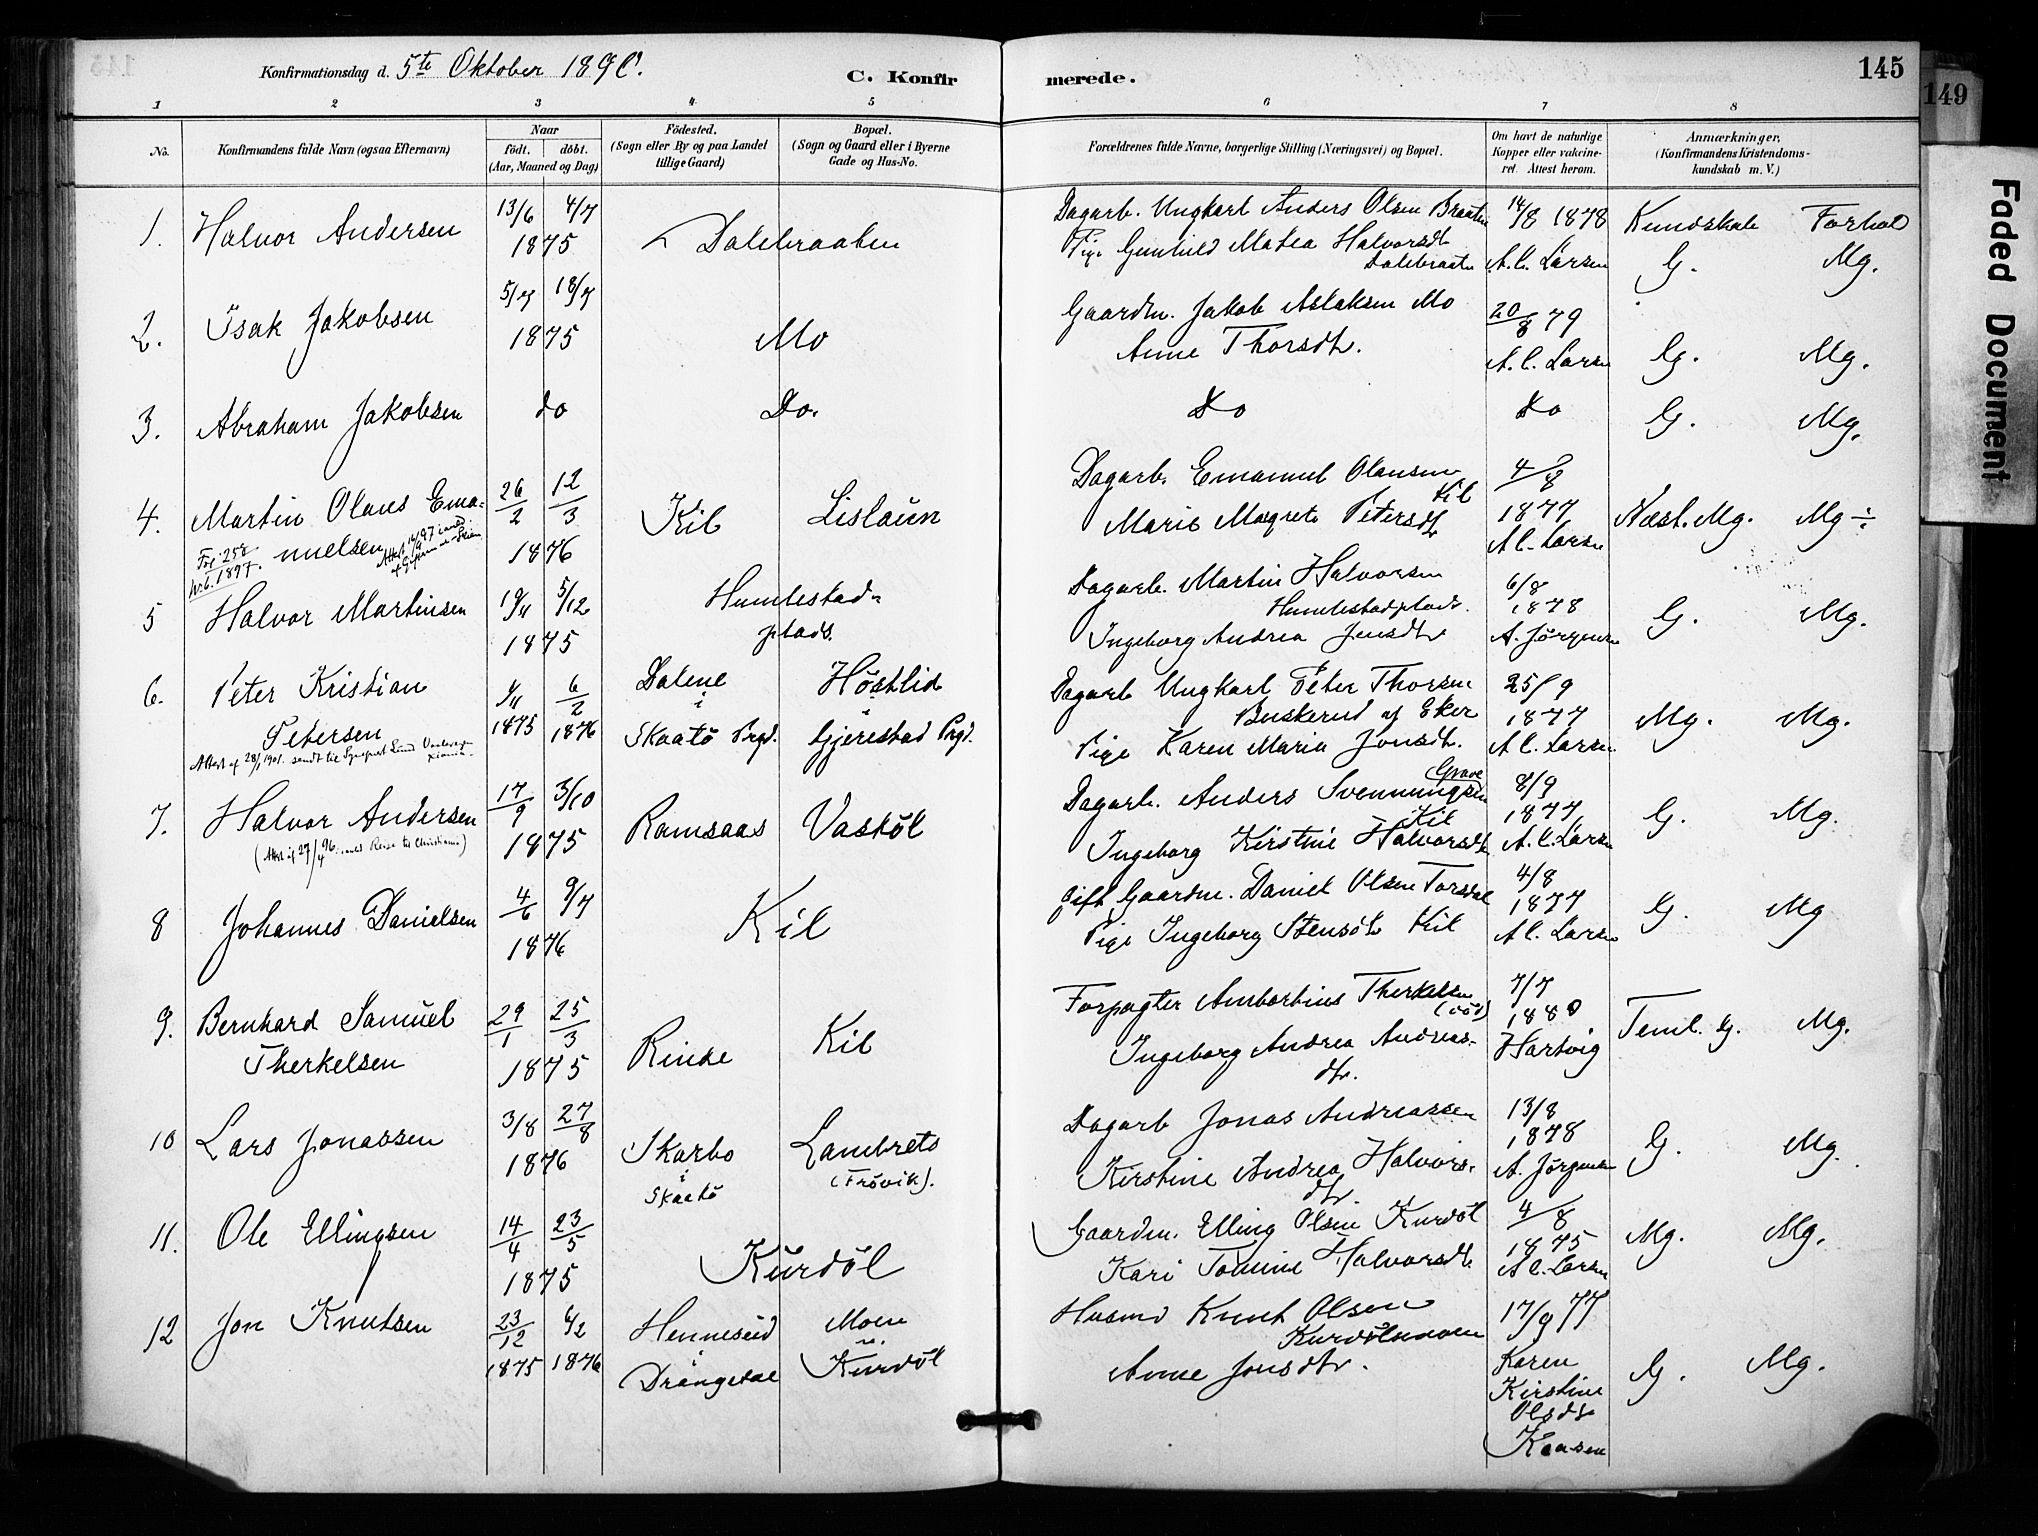 Konfirmationsdag d. 5te Oktober 1890.
C. Konfirmerede.
145
149
1 2 3 4 5 6 7 8
No.
Konfirmandens fulde Navn (ogsaa Efternavn)
Naar
födt. döbt.
(Aar, Maaned og Dag)
Födested.
(Sogn eller By og paa Landet
tillige Gaard)
Bopæl.
(Sogn og Gaard eller i Byerne
Gade og Hus-No.
Forældrenes fulde Navne, borgerlige Stilling (Næringsvei) og Bopæl.
Om havt de naturlige
Kopper eller vakcine-
ret. Attest herom.
Anmærkninger,
(Konfirmandens Kristendoms-
kundskab m. V.)
Faded Document
1. Halvor Andersen 13/6 4/7
1875
Dalebraaten
Dagarb. Ungkarl Anders Olsen Braaten
Pige Gunhild Matea Halvorsdtr
Dalebraaten
14/8 1878
A. C. Larsen
Kundskab Forhol
G. Mg.
2. Isak Jakobsen 5/7 18/7
1875
Mo
Gaardm. Jakob Aslaksen Mo
Anne Thorsdtr.
20/8 79
A. C. Larsen
G. Mg.
3. Abraham Jakobsen do Do.
Do Do G. Mg.
4. Martin Olaus Ema-
nuelsen
26/2 12/3
1876
Kil Lislaun
Dagarb. Emanuel Olausen
Kil
Marie Magrete Petersdtr
4/8
1877
A C. Larsen
Næst. Mg. Mg ÷
5 Halvor Martinsen 19/11 5/12
1875
Humlestad-
plads.
Dagarb. Martin Halvorsen
Humlestadplads.
Ingeborg Andrea Jensdtr
6/8
1878
A. Jörgensen
G. Mg.
6. Peter Kristian
Petersen
6/2
1875 1876
Dalene
i
Skaatö Prgd.
Höstlid
i
Gjerestad Prgd.
Dagarb Ungkarl Peter Thorsen
Buskerud af Eker
Pige Karen Maria Jonsdtr.
25/9
1877
A C. Larsen
Mg. Mg.
7. Halvor Andersen
(Att. af 27/4 96. med Reise til Christiania)
17/9 3/10
1875
Ramsaas Vasböl
Dagarb. Anders Svenningsen
Kil
Ingeborg Kirstine Halvorsdtr
8/9
1877
A. C. Larsen
G. Mg.
8 Johannes Danielsen 4/6 9/7
1876
Kil
Gift Gaardm. Daniel Olsen Torsdal
Pige Ingeborg Stensdtr Kil
4/8
1877
A C. Larsen
G. Mg
9. Bernhard Samuel
Therkelsen
29/1 25/3
1875
Rinde Kil
Forpagter Ambortius Therkelsen
(död)
Ingeborg Andrea Andreas-
dtr.
7/7
1880
Hartvig
Teml. G. Mg.
10 Lars Jonassen 3/8 27/8
1876
Skarbo
i
Skaatö
Lambrets
(Frövik).
Dagarb Jonas Andreassen
Kirstine Andrea Halvors-
dtr.
13/8
1878
A. Jörgensen
G. Mg.
11. Ole Ellingsen 14/4 23/5
1875
Kurdöl
Gaardm. Elling Olsen Kurdöl
Kari Tomine Halvorsdtr
4/8
1875
A C. Larsen
Mg. Mg.
12 Jon Knutsen 23/12 6/2
1875 1876
Henneseid
i
Drangedal
Moen
u.
Kurdöl
Husmd Knut Olsen
Kurdölmoen
Anne Jonsdtr.
17/9 77
Karen
Kirstine
Olsdtr
Kaasen
G. Mg.